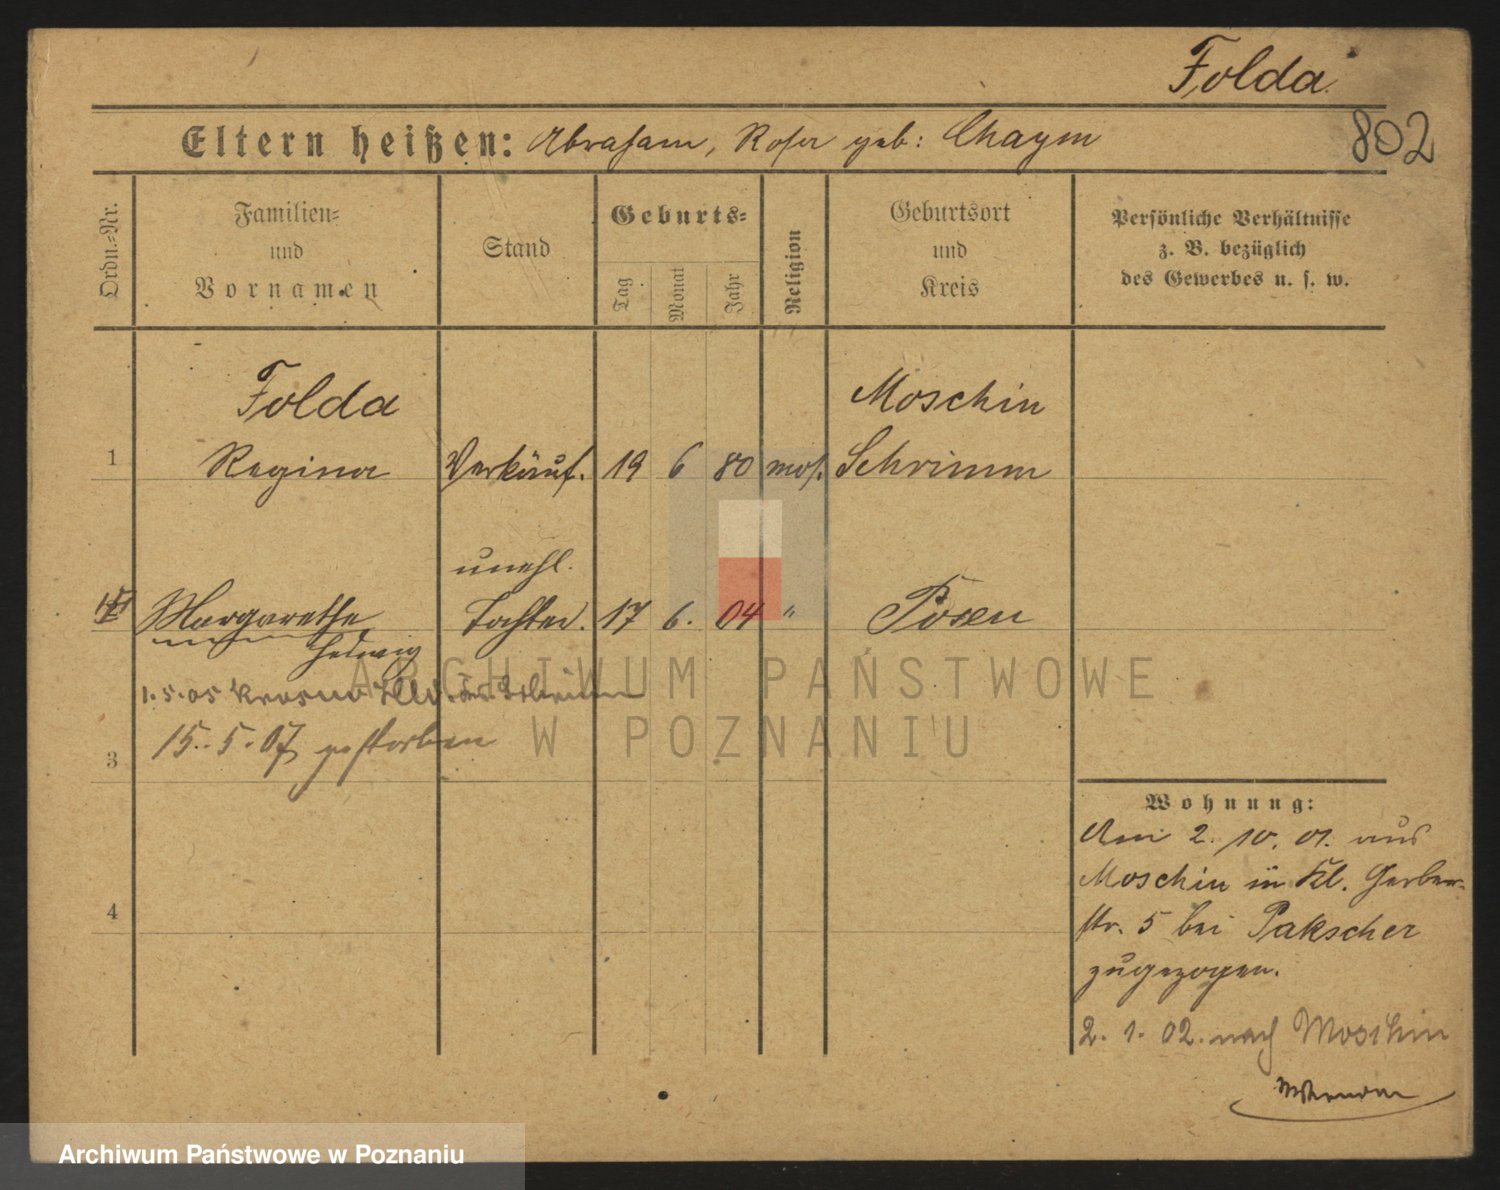 Folda.
802
Eltern heißen: Abraham, Rosa geb: Chaym
Ordn.-Nr.
Familien-
und
Vornamen
Stand
Geburts-
Tag
Monat
Jahr
Religion
Geburtsort
und
Kreis
Persönliche Verhältnisse
z. B. bezüglich
des Gewerbes u. s. w.
Folda
Moschin
1 Regina Verkäuf. 19 6 80 mos. Schrimm
unehl.
Margarethe Tochter. 17 6. 04 " Posen
Hedwig
1.5.05
15.5.07 gestorben
3
4
Wohnung:
Am 2. 10. 01. aus
Moschin in Kl. Gerber-
str. 5 bei Pakscher
zugezogen.
2. 1. 02. nach Moschin
ARCHIWUM PAŃSTWOWE
W POZNANIU
Archiwum Państwowe w Poznaniu